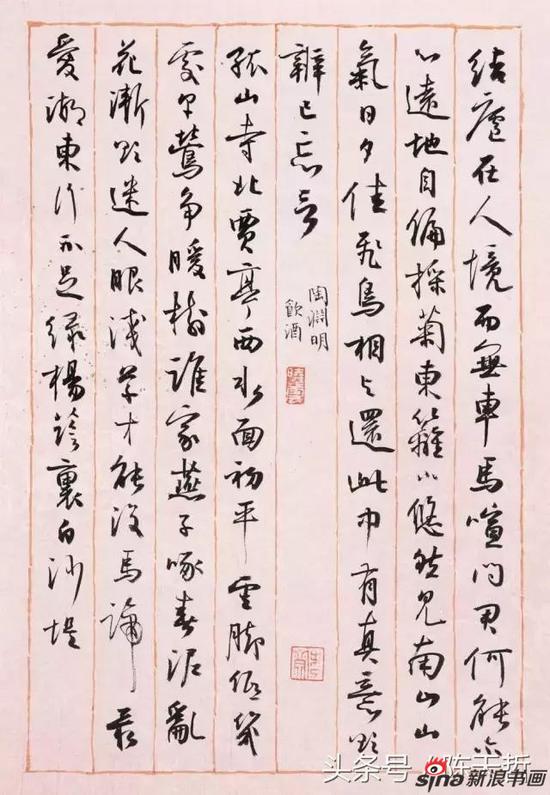 結廬在人境而無車馬喧問君何能尔
心遠地自偏採菊東籬下悠然見南山山
氣日夕佳飛鳥相与還此中有真意欲
辨已忘言
陶淵明
飲酒
孤山寺北賈亭西水面初平雲脚低幾
處早鶯争暖樹誰家燕子啄春泥亂
花漸欲迷人眼淺草才能没馬蹄最
愛湖東行不足緑楊陰裏白沙堤
头条号 /
sina新浪书画